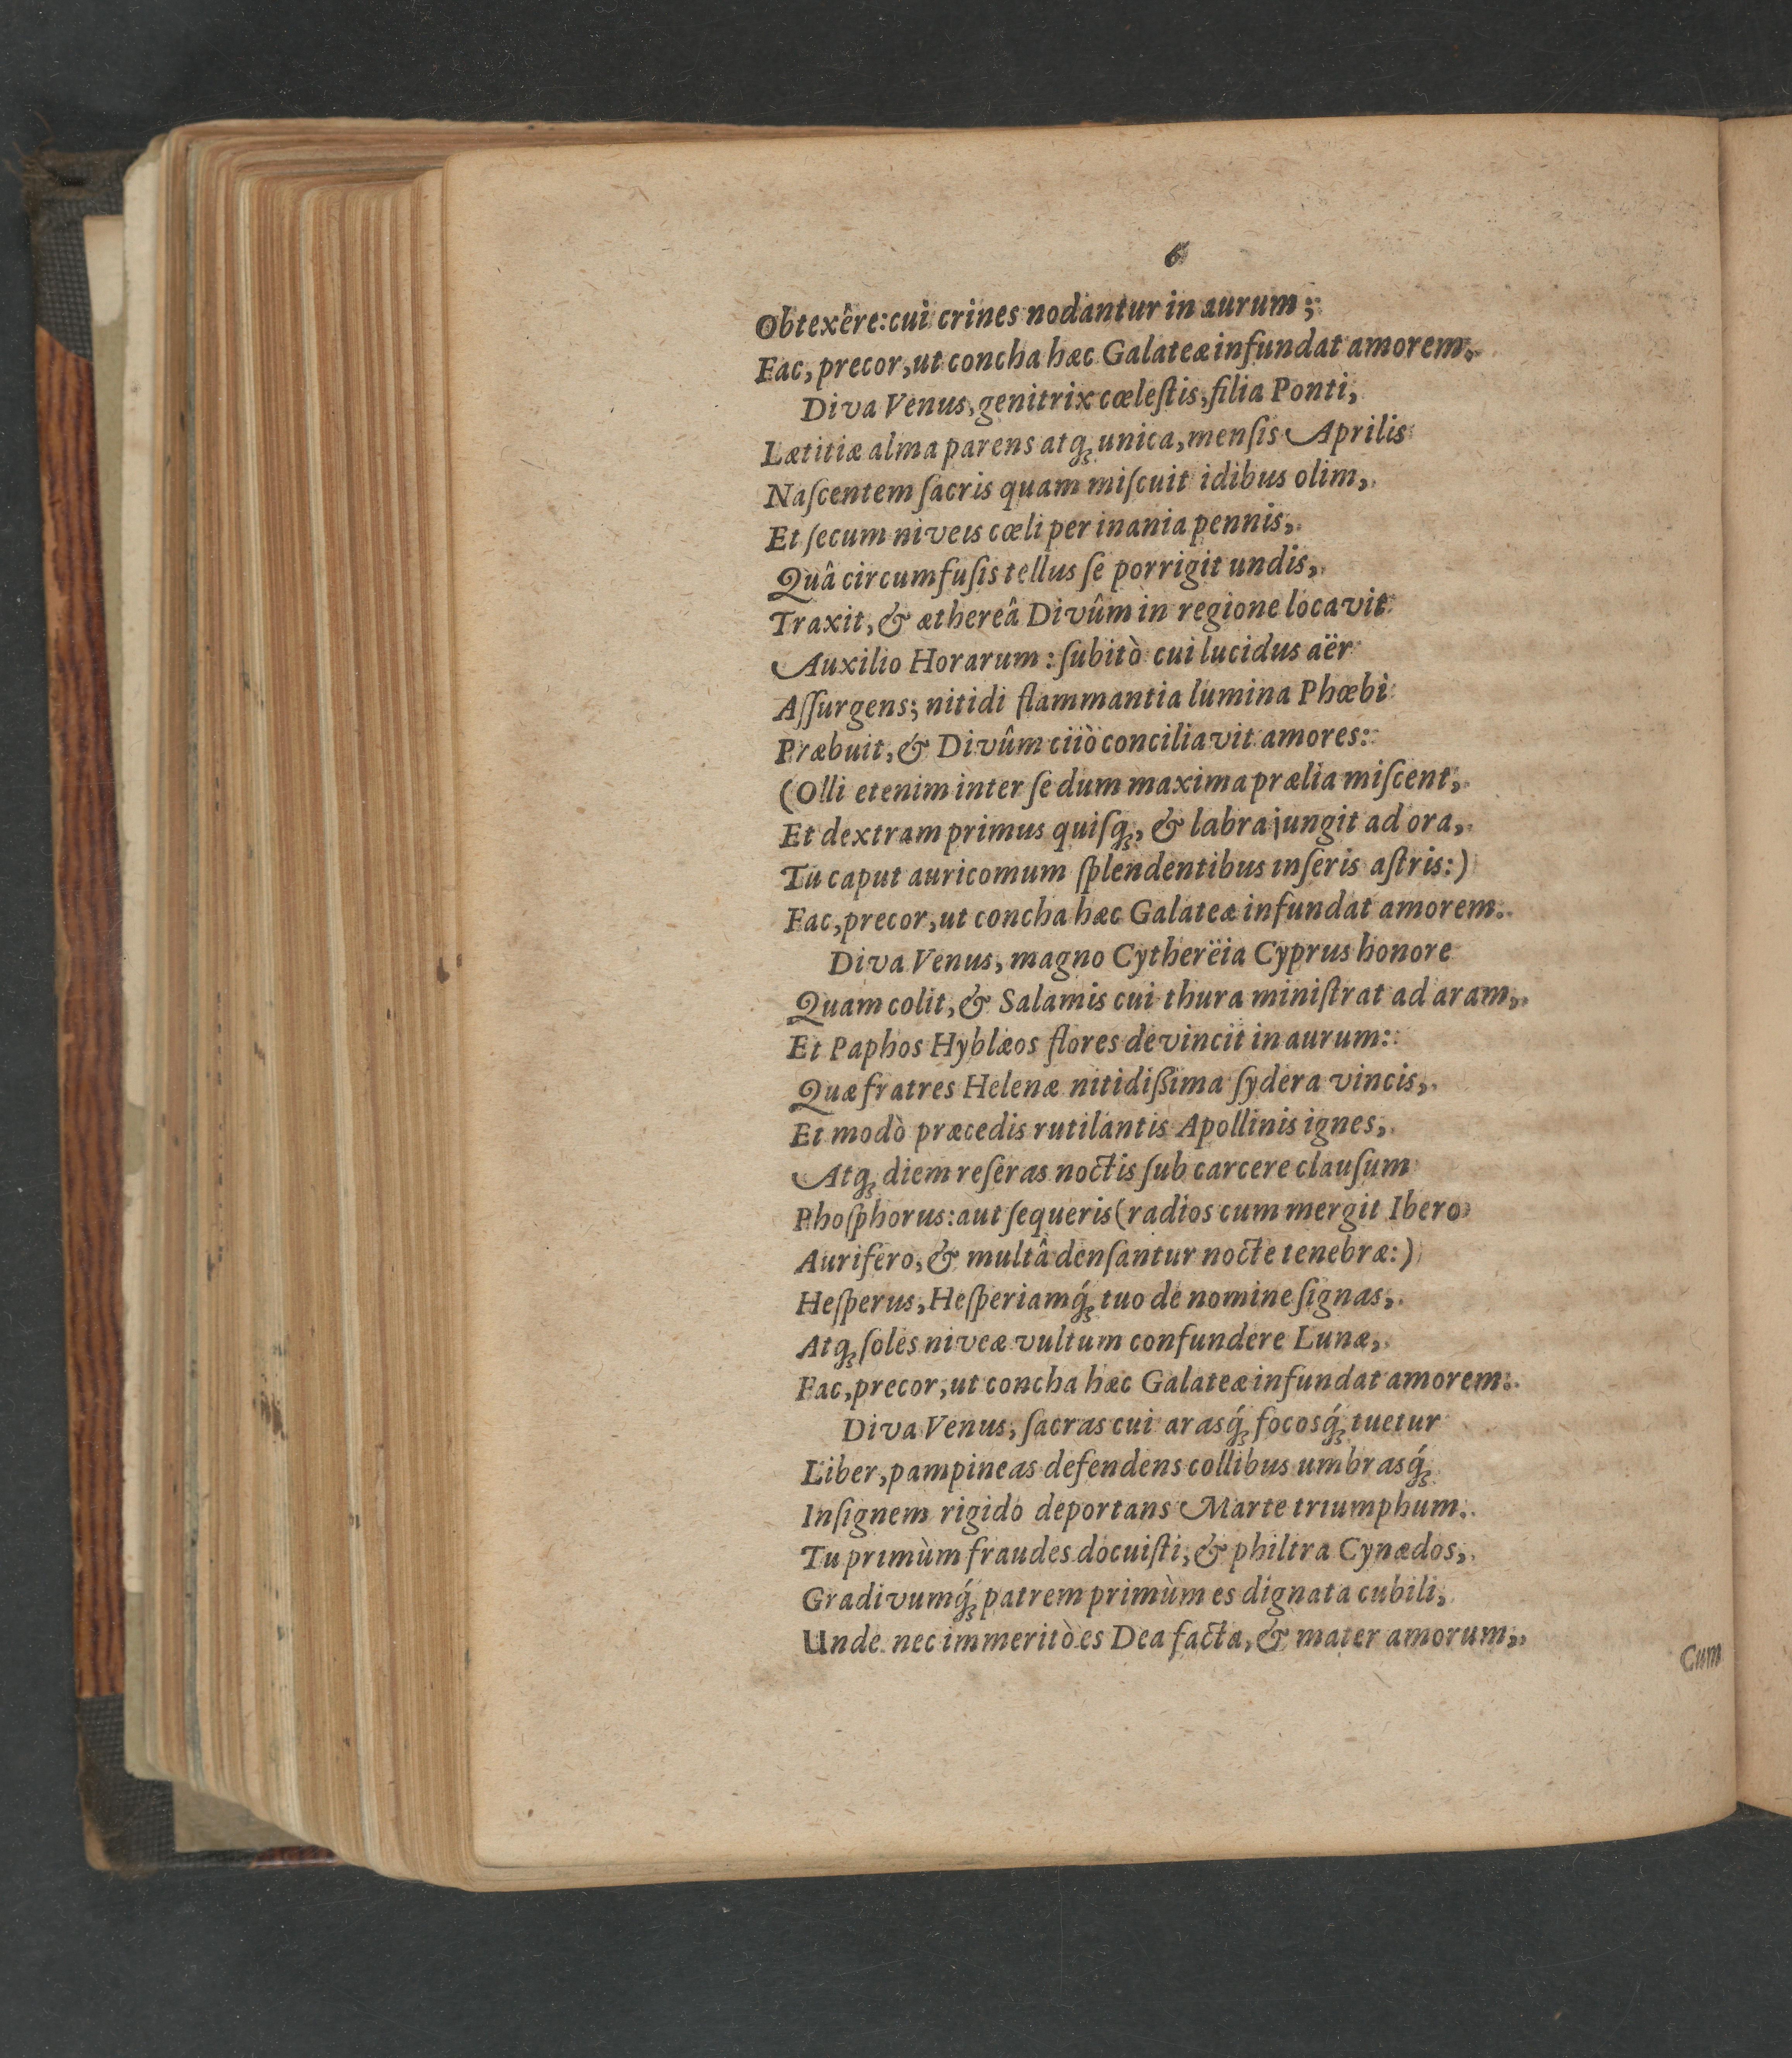 6
Obtexêre: cui crines nodantur in aurum;
Fac, precor, ut concha hæc Galateæ infundat amorem.
Diva Venus, genitrix cœleſtis, filia Ponti,
Lætitiæ alma parens atq́; unica, menſis Aprilis
Naſcentem ſacris quam miſcuit idibus olim,
Et ſecum niveis cœli per inania pennis,
Quâ circumfuſis tellus ſe porrigit undis,
Traxit, & æthereâ Divûm in regione locavit
Auxilio Horarum: ſubitò cui lucidus aër
Aſſurgens; nitidi flammantia lumina Phœbi
Præbuit, & Divûm ciiò conciliavit amores:
(Olli etenim inter ſe dum maxima prælia miſcent,
Et dextram primus quiſq;, & labra jungit ad ora,
Tu caput auricomum ſplendentibus inſeris aſtris:)
Fac, precor, ut concha hæc Galateæ infundat amorem.
Diva Venus, magno Cytherëia Cyprus honore
Quam colit, & Salamis cui thura miniſtrat ad aram,
Et Paphos Hyblæos flores devincit in aurum:
Quæ fratres Helenæ nitidißima ſydera vincis,
Et modò præcedis rutilantis Apollinis ignes,
Atq; diem reſeras noctis ſub carcere clauſum
Phoſphorus: aut ſequeris (radios cum mergit Ibero
Aurifero, & multâ denſantur nocte tenebræ:)
Heſperus, Heſperiamq́; tuo de nomine ſignas,
Atq; ſoles niveæ vultum confundere Lunæ,
Fac, precor, ut concha hæc Galateæ infundat amorem.
Diva Venus, ſacras cui arasq́; focosq́; tuetur
Liber, pampineas defendens collibus umbrasq́;
Inſignem rigido deportans Marte triumphum.
Tu primùm fraudes docuiſti, & philtra Cynædos,
Gradivumq́; patrem primùm es dignata cubili,
Unde nec immeritò es Dea facta, & mater amorum,
Cum